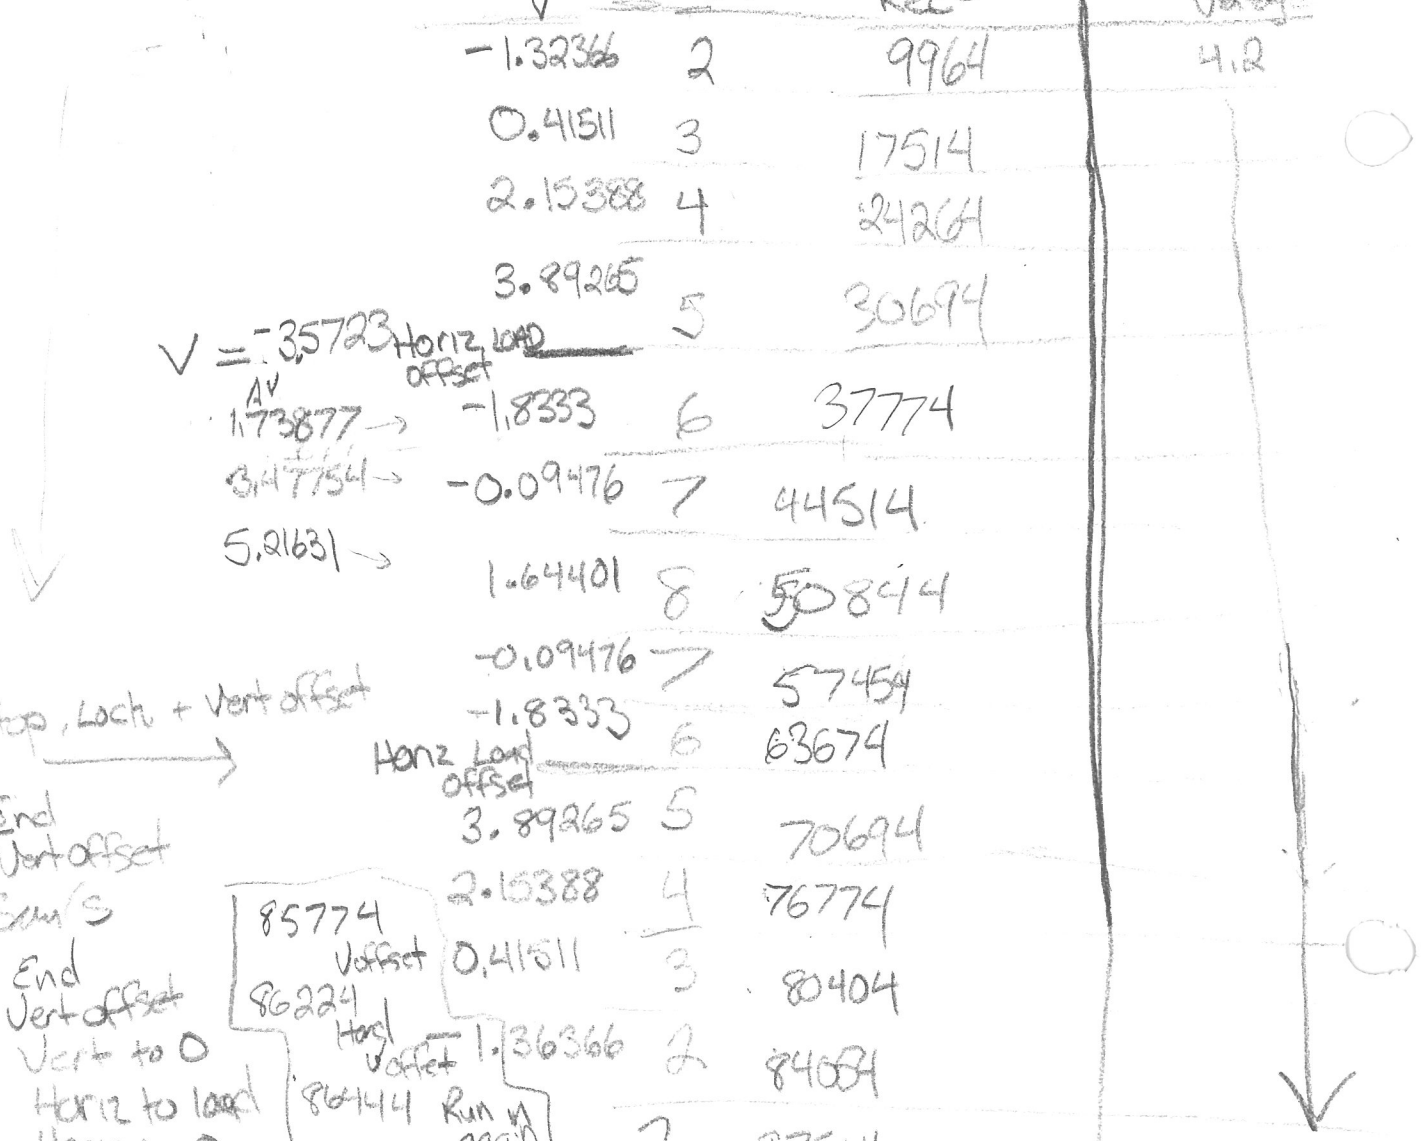 -1.32366 2 9964 4.2
0.41511 3 17514
2.15388 4 24264
3.89265 5 30694
V = -3.5723 Horiz LOAD
offset
ΔV
1.73877 → -1.8333 6 37774
3.47754 → -0.09476 7 44514
5.21631 → 1.64401 8 50844
-0.09476 7 57454
top, Lock + Vert offset -1.8333 6 63674
Horiz Load
offset
End 3.89265 5 70694
Vert offset
2.15388 4 76774
85774
Voffset 0.41511 3 80404
End
Vert offset 86224
Vert to 0 Horzl
Voffset -1.36366 2 84084
Horiz to load 86444 Run in